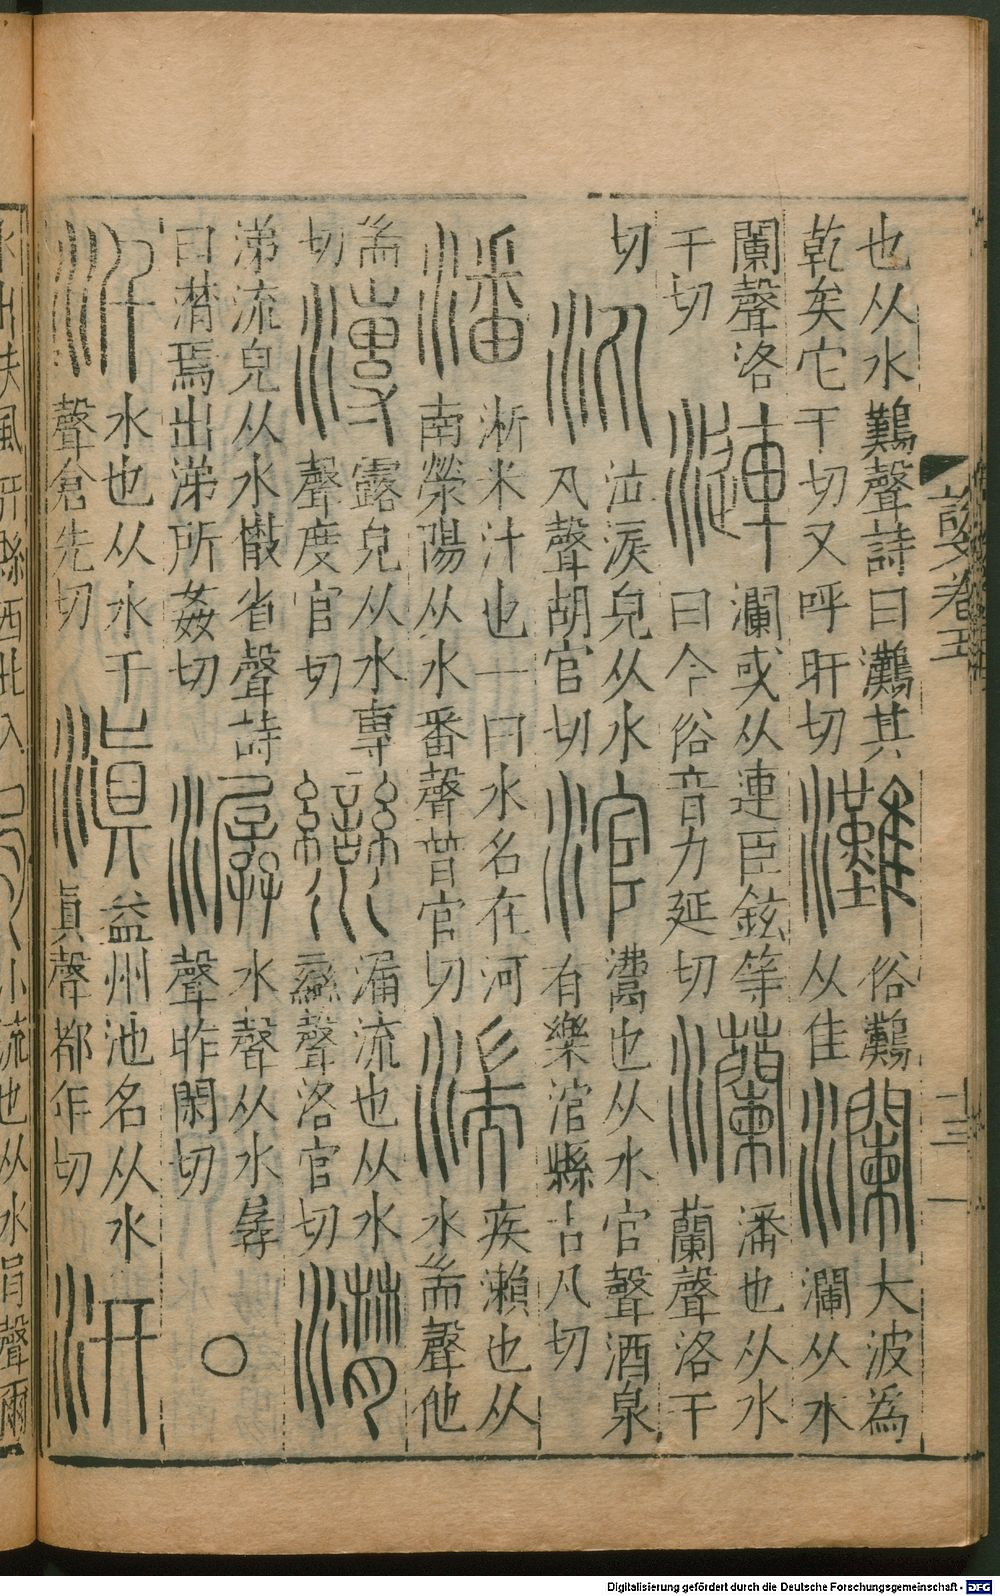 也从水鷬聲詩曰灘其乾矣它干切又呼旰切灘俗灘从隹瀾大波為瀾从水
闌聲洛干切漣瀾或从連臣鉉等曰今俗音力延切灡潘也从水蘭聲洛干
切汍泣淚皃从水丸聲胡官切涫灊也从水官聲酒泉有樂涫縣古凡切
潘淅米汁也一曰水名在河南滎陽从水番聲普官切湍疾瀨也从水耑聲他
耑切漙露皃从水專聲度官切灓漏流也从水䜌聲洛官切潸
涕流皃从水㪚省聲詩曰潸焉出涕所姦切潺水聲从水孱聲昨閑切○
汘水也从水千聲倉先切滇益州池名从水眞聲都年切汧
說文卷五
十三
水出扶風汧縣西北入
小流也从水肙聲爾
Digitalisierung gefördert durch die Deutsche Forschungsgemeinschaft - DFG